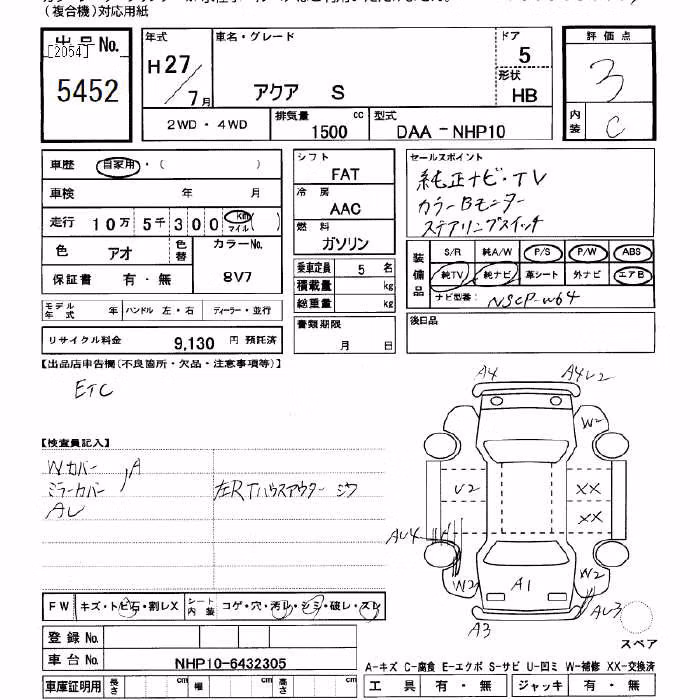 （複合機）対応用紙
出品No.
[2054]
5452
年式
H27/7月
車名・グレード
アクア S
ドア
5
形状
HB
評価点
3
内装
C
2WD・4WD
排気量 cc
1500
型式
DAA-NHP10
車歴 自家用・( )
車検 年 月
走行 10万 5千 300 Km マイル( )
色 アオ 色替
カラーNo.
8V7
保証書 有・無
シフト
FAT
冷房
AAC
燃料
ガソリン
乗車定員 5 名
積載量 kg
総重量 kg
書類期限
月 日
セールスポイント
純正ナビ・TV
カラーBモニター
ステアリングスイッチ
装備品
S/R 純A/W P/S P/W ABS
純TV 純ナビ 革シート 外ナビ エアB
ナビ型番: NSCP-W64
後日品
モデル年式 年 ハンドル 左・右 ディーラー・並行
リサイクル料金 9,130 円 預託済
【出品店申告欄(不良箇所・欠品・注意事項等)】
ETC
【検査員記入】
Wカバー
ミラーカバー A
AU
左RTハウスアウター シワ
A4
A4U2
W2
U2
XX
XX
AU4
A
W2
W2
A1
A3
AU3
スペア
FW キズ・トビ石・割レX シート内装 コゲ・穴・汚レ・シミ・破レ・スレ
登録No.
車台No. NHP10-6432305
車庫証明用 長さ cm 幅 cm 高さ cm
A-キズ C-腐食 E-エクボ S-サビ U-凹ミ W-補修 XX-交換済
工具 有・無 ジャッキ 有・無